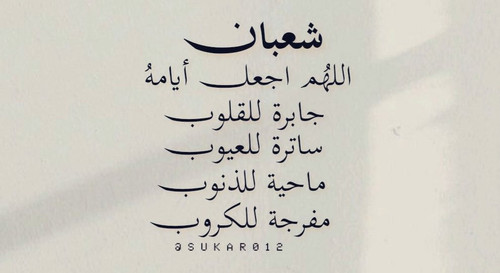 شعبان
اللهُم اجعل أيامهُ
جابرة للقلوب
ساترة للعيوب
ماحية للذنوب
مفرجة للكروب
@SUKAR012